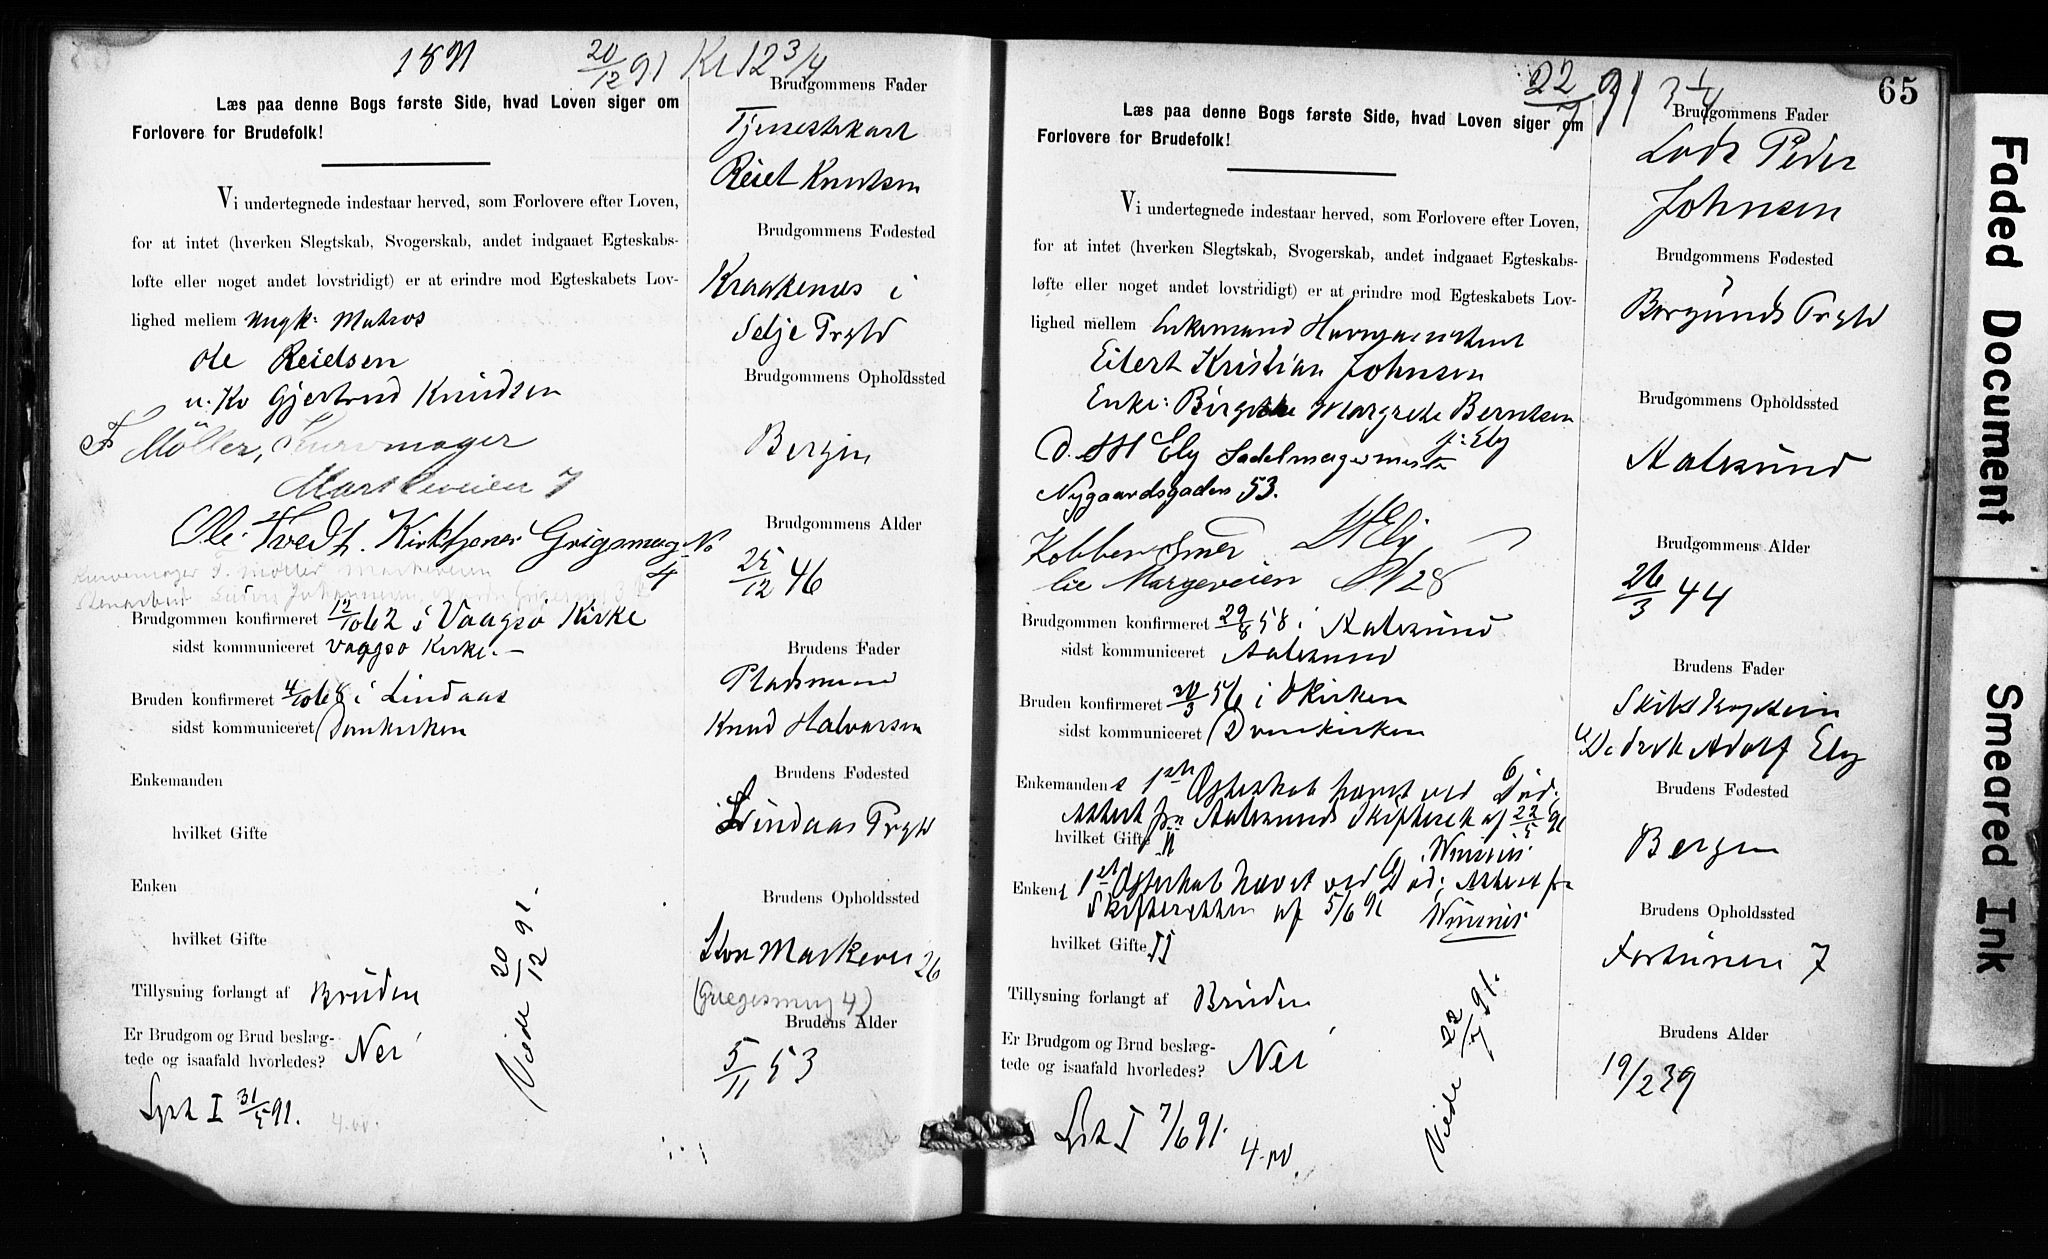 1891 20/12 91 Kl 12 3/4
Læs paa denne Bogs første Side, hvad Loven siger om
Forlovere for Brudefolk!
Vi undertegnede indestaar herved, som Forlovere efter Loven,
for at intet (hverken Slegtskab, Svogerskab, andet indgaaet Egteskabs-
løfte eller noget andet lovstridigt) er at erindre mod Egteskabets Lov-
lighed mellem Ungk: Matros
Ole Reielsen
u. Ko Gjertrud Knudsen
F Möller, Kurvmager
Markeveien 7
Ole Tvedt. Kirketjener Grigsmug No
4
Kurvemager F. Møller Markeveien
Brudgommen konfirmeret 12/10 62 i Vaagsø Kirke
sidst kommuniceret Vaagsø Kirke. –
Bruden konfirmeret 4/10 68 i Lindaas
sidst kommuniceret Domkirken
Enkemanden
hvilket Gifte
Enken
hvilket Gifte
Tillysning forlangt af Bruden
Er Brudgom og Brud beslæg-
tede og isaafald hvorledes? Nei
Lyst I 31/5 91.
4.00
Viede 20/12 91.
Brudgommens Fader
Tjenestekarl
Reiel Knutsen
Brudgommens Fødested
Kraakenes i
Selje Prgld
Brudgommens Opholdssted
Bergen
Brudgommens Alder
25/12 46
Brudens Fader
Pladsmand
Knud Halvorsen
Brudens Fødested
Lindaas Prgld
Brudens Opholdssted
Stor Markevei 26
(Griegsmug 4)
Brudens Alder
5/11 53
22/7 91 7 1/4
65
Læs paa denne Bogs første Side, hvad Loven siger om
Forlovere for Brudefolk!
Vi undertegnede indestaar herved, som Forlovere efter Loven,
for at intet (hverken Slegtskab, Svogerskab, andet indgaaet Egteskabs-
løfte eller noget andet lovstridigt) er at erindre mod Egteskabets Lov-
lighed mellem Enkemand
Eilert Kristian Johnsen
Enke: Birgitte Margrete Berntsen
f: Ely
D. M Ely Sadelmagermester
Nygaardsgaden 53.
Kobber
Lie Margeveien N 28
Brudgommen konfirmeret 29/8 58 i Aalesund
sidst kommuniceret Aalesund
Bruden konfirmeret 30/3 56 i Kirken
sidst kommuniceret Domkirken
Enkemandens 1ste Egteskab hævet ved Død;
Attest fra Aalesunds Skifteret af 22/5 91
hvilket Gifte II
Enkens 1ste Egteskab hævet ved Død; Attest fra
Skifteretten af 5/6 91
hvilket Gifte II
Tillysning forlangt af Bruden
Er Brudgom og Brud beslæg-
tede og isaafald hvorledes? Nei
Lyst I 7/6 91.
4.00.
Viede 22/7 91.
Brudgommens Fader
Lods Peder
Johnsen
Brudgommens Fødested
Borgunds Prgld
Brudgommens Opholdssted
Aalesund
Brudgommens Alder
26/3 44
Brudens Fader
Skibskaptein
Didrik Adolf Ely
Brudens Fødested
Bergen
Brudens Opholdssted
Fortunen 7
Brudens Alder
19/2 39
Faded Document
Smeared Ink